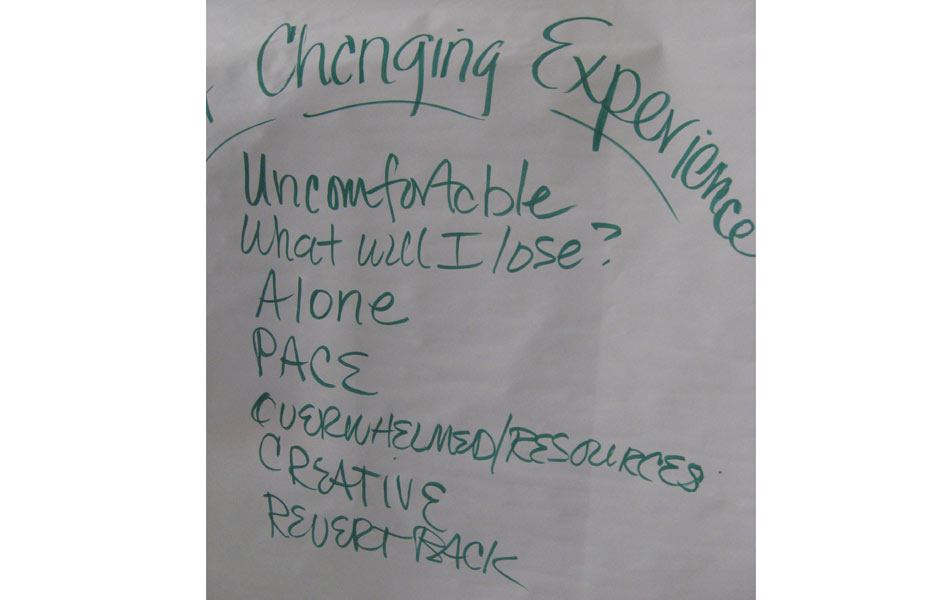 Changing Experience
Uncomfortable
What will I lose?
Alone
PACE
OVERWHELMED/RESOURCES
CREATIVE
REVERT BACK